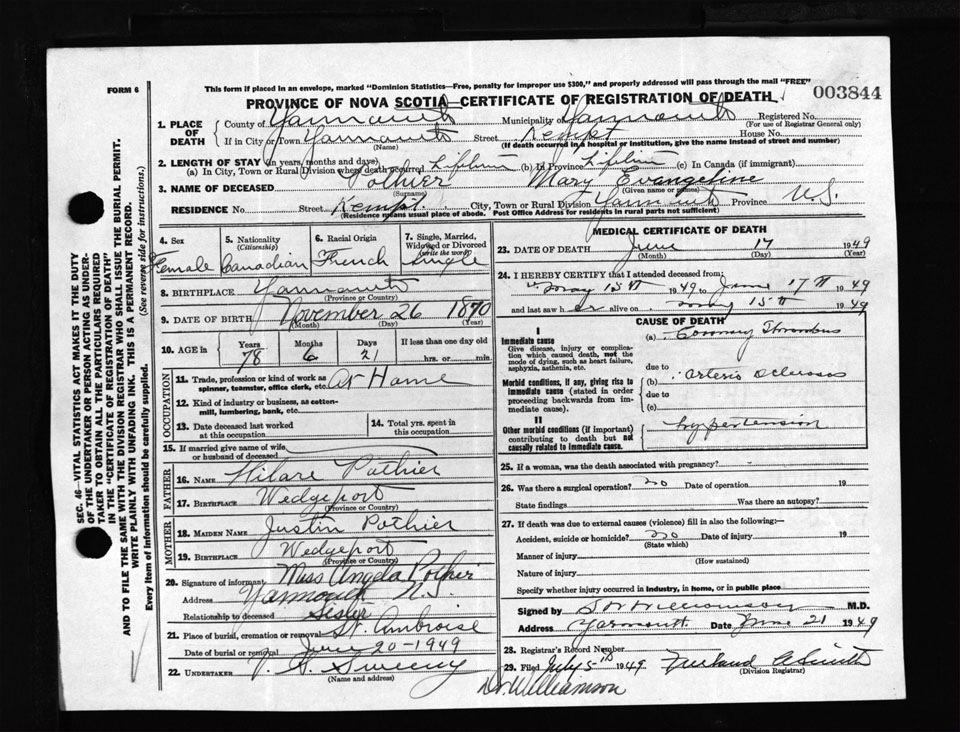 FORM 6
This form if placed in an envelope, marked "Dominion Statistics—Free, penalty for improper use $300," and properly addressed will pass through the mail "FREE"
PROVINCE OF NOVA SCOTIA—CERTIFICATE OF REGISTRATION OF DEATH
003844
1. PLACE OF DEATH
County of Yarmouth Municipality of Yarmouth Registered No.
(For use of Registrar General only)
If in City or Town Yarmouth Street Kempt House No.
(Name) (If death occurred in a hospital or institution, give the name instead of street and number)
2. LENGTH OF STAY (in years, months and days)
(a) In City, Town or Rural Division where death occurred Lifetime (b) In Province Lifetime (c) In Canada (if immigrant)
3. NAME OF DECEASED Pothier Mary Evangeline
(Surname) (Given name or names)
RESIDENCE No. Street Kempt City, Town or Rural Division Yarmouth Province N.S.
(Residence means usual place of abode. Post Office Address for residents in rural parts not sufficient)
4. Sex
Female
5. Nationality (Citizenship)
Canadian
6. Racial Origin
French
7. Single, Married, Widowed or Divorced (write the word)
Single
8. BIRTHPLACE Yarmouth
(Province or Country)
9. DATE OF BIRTH November 26 1870
(Month) (Day) (Year)
10. AGE in Years Months Days If less than one day old
78 6 21 hrs. or min.
OCCUPATION
11. Trade, profession or kind of work as spinner, teamster, office clerk, etc. At Home
12. Kind of industry or business, as cotton-mill, lumbering, bank, etc.
13. Date deceased last worked at this occupation
14. Total yrs. spent in this occupation
15. If married give name of wife or husband of deceased
FATHER
16. NAME Hilare Pothier
17. BIRTHPLACE Wedgeport
(Province or Country)
MOTHER
18. MAIDEN NAME Justin Pothier
19. BIRTHPLACE Wedgeport
(Province or Country)
20. Signature of informant Miss Angela Pothier
Address Yarmouth N.S.
Relationship to deceased Sister
21. Place of burial, cremation or removal St. Ambroise
Date of burial or removal June 20-1949
22. UNDERTAKER V. Sweeny
(Name and address)
MEDICAL CERTIFICATE OF DEATH
23. DATE OF DEATH June 17 1949
(Month) (Day) (Year)
24. I HEREBY CERTIFY that I attended deceased from:
May 15th 1949 to June 17th 1949
and last saw her alive on May 15th 1949
CAUSE OF DEATH
I
Immediate cause
Give disease, injury or complication which caused death, not the mode of dying, such as heart failure, asphyxia, asthenia, etc.
(a) Coronary Thrombus
due to
Morbid conditions, if any, giving rise to immediate cause (stated in order proceeding backwards from immediate cause).
(b) Arterio Sclerosis
due to
(c)
II
Other morbid conditions (if important) contributing to death but not causally related to immediate cause.
Hypertension
25. If a woman, was the death associated with pregnancy?
26. Was there a surgical operation? no Date of operation 19
State findings Was there an autopsy?
27. If death was due to external causes (violence) fill in also the following:—
Accident, suicide or homicide? no Date of injury 19
(State which)
Manner of injury
(How sustained)
Nature of injury
Specify whether injury occurred in industry, in home, or in public place
Signed by Williamson M.D.
Address Yarmouth Date June 21 1949
28. Registrar's Record Number
29. Filed July 5th 1949
(Division Registrar)
Dr. Williamson
SEC. 46—VITAL STATISTICS ACT MAKES IT THE DUTY OF THE UNDERTAKER OR PERSON ACTING AS UNDERTAKER TO OBTAIN ALL THE PARTICULARS REQUIRED IN THE "CERTIFICATE OF REGISTRATION OF DEATH" AND TO FILE THE SAME WITH THE DIVISION REGISTRAR WHO SHALL ISSUE THE BURIAL PERMIT.
WRITE PLAINLY WITH UNFADING INK. THIS IS A PERMANENT RECORD.
Every item of information should be carefully supplied. (See reverse side for instructions.)